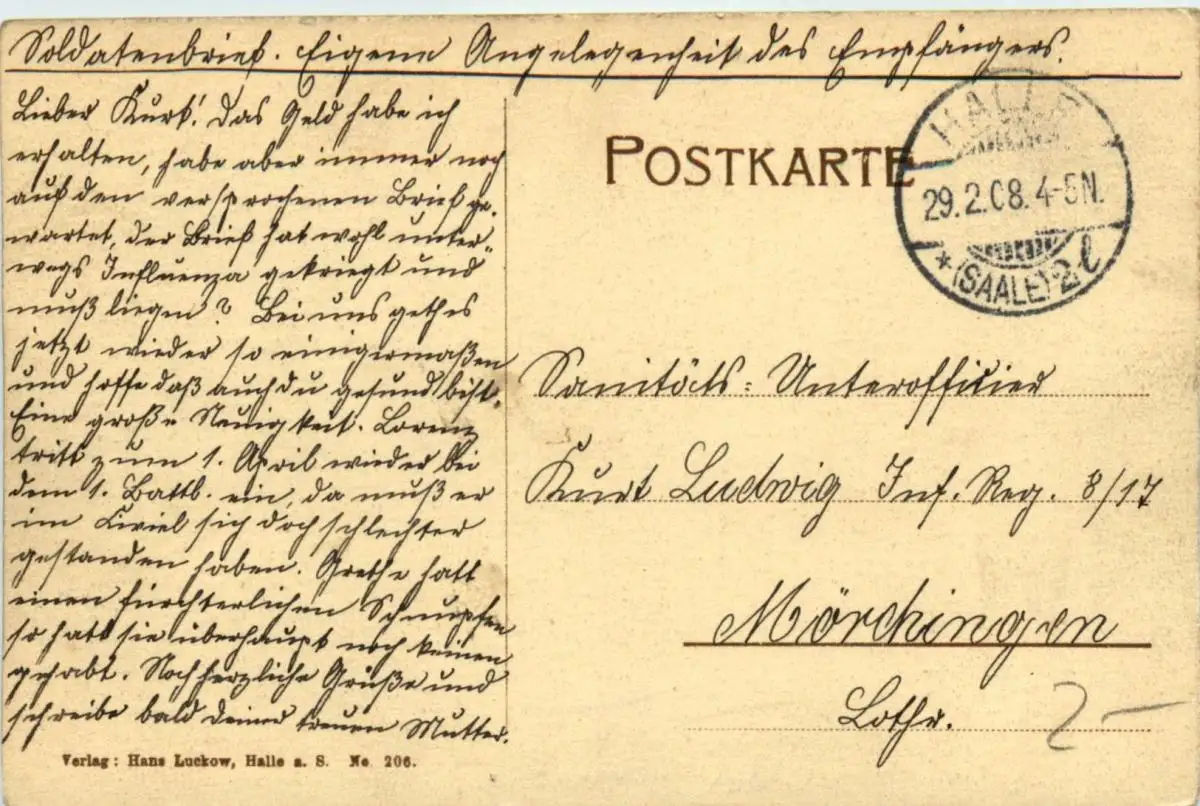 Soldatenbrief. Eigene Angelegenheit des Empfängers.
Lieber Kurt! Das Geld habe ich
erhalten, habe aber immer noch
auf den versprochenen Brief ge-
wartet, der Brief hat wohl unter-
wegs Influenza gekriegt und
muß liegen? Bei uns geht es
jetzt wieder so einigermaßen
und hoffe daß auch du gesund bist.
Eine große Neuigkeit. Lorenz
tritt zum 1. April wieder bei
dem 1. Battl. ein, da muß er
im Civiel sich doch schlechter
gestanden haben. Grethe hatt
einen fürchterlichen Schnupfen
so hatt sie überhaupt noch keinen
gehabt. Noch herzliche Grüße und
schreibe bald deiner treuen Mutter.
Verlag: Hans Luckow, Halle a. S. No. 206.
POSTKARTE
HALLE
29.2.08.4-5N.
* (SAALE) 2 l
Sanitäts-Unteroffizier
Kurt Ludwig Inf. Reg. 8/17
Mörchingen
Lothr.
2-